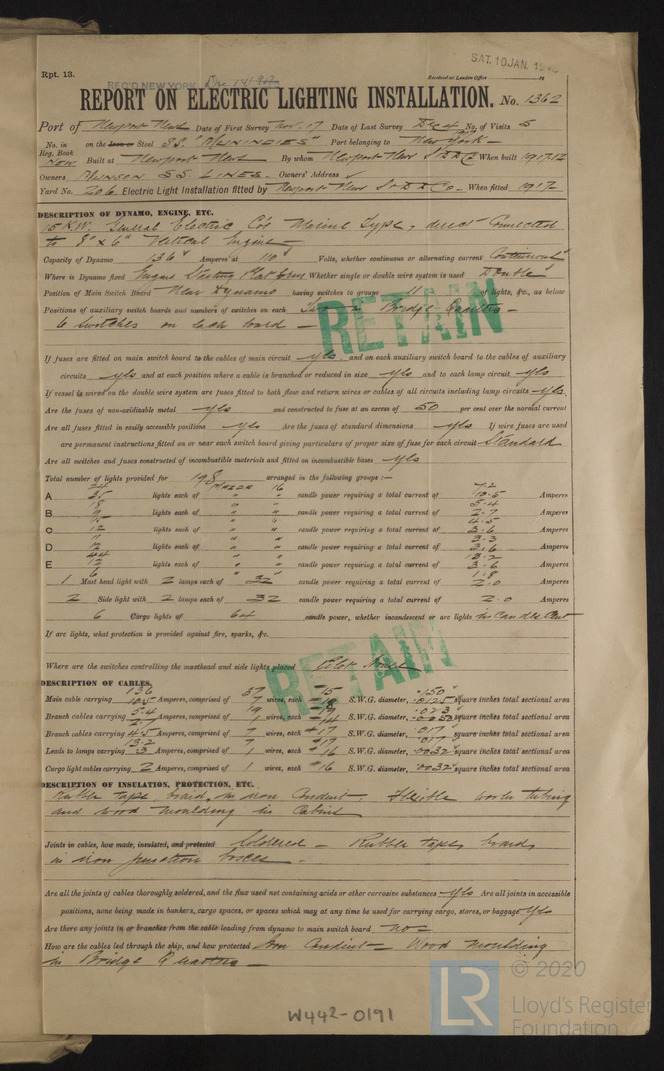 Rpt. 13.
SAT. 10 JAN. 19
REC'D NEW YORK Dec 14 1917
Received at London Office
REPORT ON ELECTRIC LIGHTING INSTALLATION. No. 1362
Port of Newport News Date of First Survey Nov. 17 Date of Last Survey Dec 4 No. of Visits 5
No. in Reg. Book on the Iron or Steel S.S. "Munindies" Port belonging to New York
New Built at Newport News By whom Newport News S & D D Co When built 1917.12
Owners Munson S.S. Lines. Owners' Address
Yard No. 206 Electric Light Installation fitted by Newport News S & D D Co. When fitted 1917
DESCRIPTION OF DYNAMO, ENGINE, ETC.
15 K.W. General Electric Co's Marine Type, direct connected
to 8" x 6" Vertical Engine
Capacity of Dynamo 136 Amperes at 110 Volts, whether continuous or alternating current Continuous
Where is Dynamo fixed Engine Starting Platform Whether single or double wire system is used Double
Position of Main Switch Board Near Dynamo having switches to groups 11 of lights, &c., as below
Positions of auxiliary switch boards and numbers of switches on each Two in Bridge Quarters
6 switches on each board
RETAIN
If fuses are fitted on main switch board to the cables of main circuit yes and on each auxiliary switch board to the cables of auxiliary
circuits yes and at each position where a cable is branched or reduced in size yes and to each lamp circuit yes
If vessel is wired on the double wire system are fuses fitted to both flow and return wires or cables of all circuits including lamp circuits yes.
Are the fuses of non-oxidizable metal yes and constructed to fuse at an excess of 50 per cent over the normal current
Are all fuses fitted in easily accessible positions yes Are the fuses of standard dimensions yes If wire fuses are used
are permanent instructions fitted on or near each switch board giving particulars of proper size of fuse for each circuit Standard
Are all switches and fuses constructed of incombustible materials and fitted on incombustible bases yes
Total number of lights provided for 198 arranged in the following groups :—
24 Mazda 16 7.2
A 35 lights each of " " candle power requiring a total current of 10.5 Amperes
18 " " 5.4
B 9 lights each of " " candle power requiring a total current of 2.7 Amperes
15 " " 4.5
C 12 lights each of " " candle power requiring a total current of 3.6 Amperes
11 " " 3.3
D 12 lights each of " " candle power requiring a total current of 3.6 Amperes
44 " " 13.2
E 12 lights each of " " candle power requiring a total current of 3.6 Amperes
6 " " 1.8
1 Mast head light with 2 lamps each of 32 candle power requiring a total current of 2.0 Amperes
2 Side light with 2 lamps each of 32 candle power requiring a total current of 2.0 Amperes
6 Cargo lights of 64 candle power, whether incandescent or arc lights incandescent
If arc lights, what protection is provided against fire, sparks, &c.
Where are the switches controlling the masthead and side lights placed Pilot House
RETAIN
DESCRIPTION OF CABLES.
Main cable carrying 136 Amperes, comprised of 37 wires, each #15 S.W.G. diameter, .150 square inches total sectional area
Branch cables carrying Amperes, comprised of wires, each S.W.G. diameter, square inches total sectional area
Branch cables carrying 4.5 Amperes, comprised of 7 wires, each #17 S.W.G. diameter, .017 square inches total sectional area
Leads to lamps carrying .3 Amperes, comprised of 1 wires, each #16 S.W.G. diameter, .0032 square inches total sectional area
Cargo light cables carrying 2 Amperes, comprised of 1 wires, each #16 S.W.G. diameter, .0032 square inches total sectional area
DESCRIPTION OF INSULATION, PROTECTION, ETC.
Rubber tape, braid, in iron Conduit. Flexible woven tubing
and wood moulding in Cabins
Joints in cables, how made, insulated, and protected Soldered — Rubber tape, braid,
in iron junction boxes.
Are all the joints of cables thoroughly soldered, and the flux used not containing acids or other corrosive substances yes Are all joints in accessible
positions, none being made in bunkers, cargo spaces, or spaces which may at any time be used for carrying cargo, stores, or baggage yes
Are there any joints in or branches from the cable leading from dynamo to main switch board no
How are the cables led through the ship, and how protected Iron Conduit — Wood moulding
in Bridge Quarters
W442-0191
LR
© 2020
Lloyd's Register
Foundation